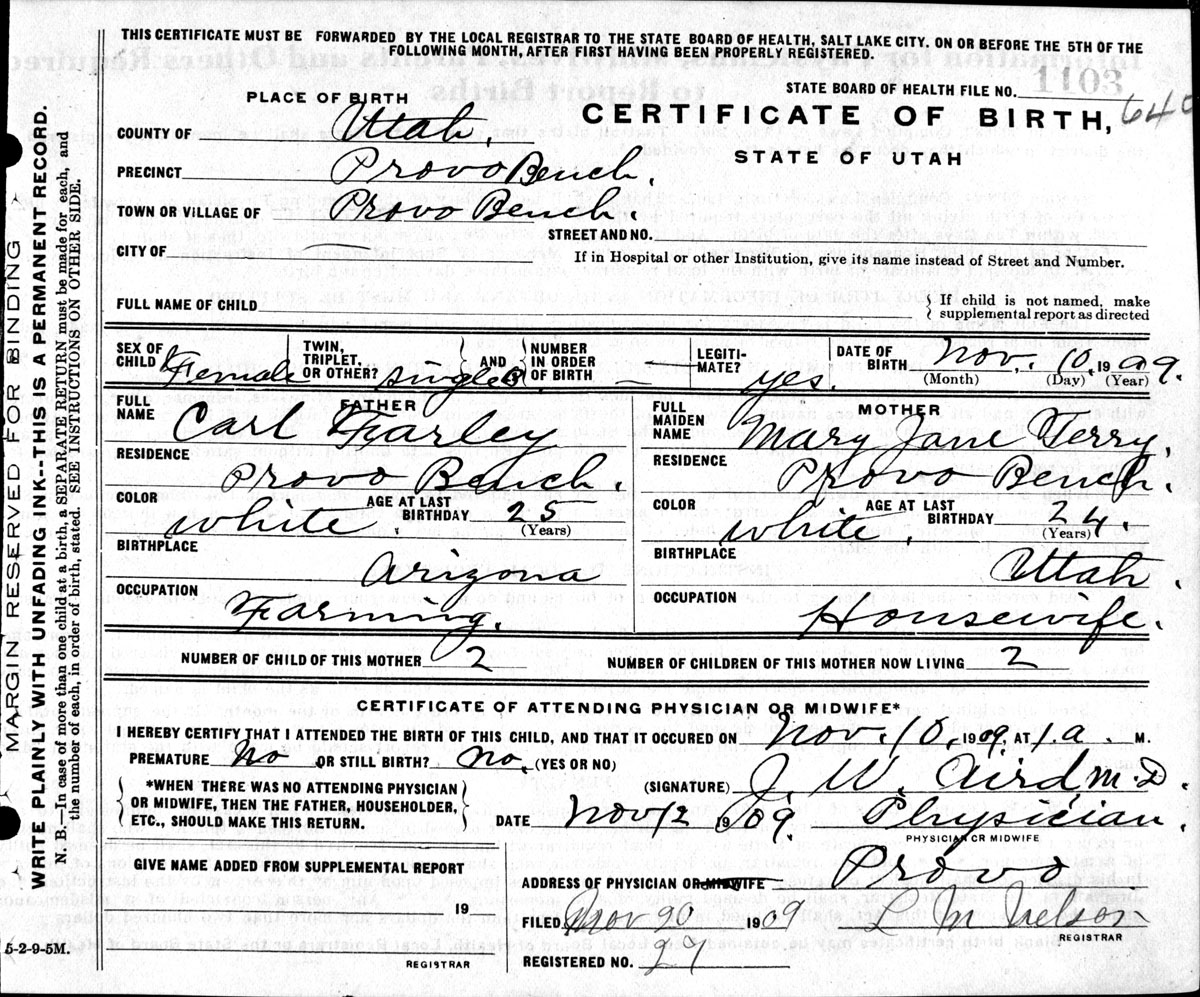 THIS CERTIFICATE MUST BE FORWARDED BY THE LOCAL REGISTRAR TO THE STATE BOARD OF HEALTH, SALT LAKE CITY, ON OR BEFORE THE 5TH OF THE
FOLLOWING MONTH, AFTER FIRST HAVING BEEN PROPERLY REGISTERED.
STATE BOARD OF HEALTH FILE NO. 1103
640
PLACE OF BIRTH
CERTIFICATE OF BIRTH,
STATE OF UTAH
COUNTY OF Utah.
PRECINCT Provo Bench.
TOWN OR VILLAGE OF Provo Bench.
STREET AND NO.
CITY OF
If in Hospital or other Institution, give its name instead of Street and Number.
FULL NAME OF CHILD
{ If child is not named, make
supplemental report as directed
SEX OF CHILD Female
TWIN, TRIPLET, OR OTHER? single
{ AND } NUMBER IN ORDER OF BIRTH —
LEGITI-MATE? yes.
DATE OF BIRTH Nov. 10, 1909.
(Month) (Day) (Year)
FATHER
FULL NAME Carl Farley
RESIDENCE Provo Bench.
COLOR White.
AGE AT LAST BIRTHDAY 25
(Years)
BIRTHPLACE Arizona
OCCUPATION Farming.
MOTHER
FULL MAIDEN NAME Mary Jane Terry.
RESIDENCE Provo Bench.
COLOR White.
AGE AT LAST BIRTHDAY 24.
(Years)
BIRTHPLACE Uttah.
OCCUPATION Housewife.
NUMBER OF CHILD OF THIS MOTHER 2
NUMBER OF CHILDREN OF THIS MOTHER NOW LIVING 2
CERTIFICATE OF ATTENDING PHYSICIAN OR MIDWIFE*
I HEREBY CERTIFY THAT I ATTENDED THE BIRTH OF THIS CHILD, AND THAT IT OCCURED ON Nov. 10, 1909, AT 1 a. M.
PREMATURE No OR STILL BIRTH? No. (YES OR NO)
{ *WHEN THERE WAS NO ATTENDING PHYSICIAN
OR MIDWIFE, THEN THE FATHER, HOUSEHOLDER,
ETC., SHOULD MAKE THIS RETURN. }
(SIGNATURE) J. W. Aird M.D.
DATE Nov 12 1909. Physician.
PHYSICIAN OR MIDWIFE
GIVE NAME ADDED FROM SUPPLEMENTAL REPORT
ADDRESS OF PHYSICIAN OR MIDWIFE Provo
FILED Nov 20 1909 L M Nelson
REGISTRAR
REGISTERED NO. 27
REGISTRAR
5-2-9-5M.
MARGIN RESERVED FOR BINDING
WRITE PLAINLY WITH UNFADING INK--THIS IS A PERMANENT RECORD.
N. B.—In case of more than one child at a birth, a SEPARATE RETURN must be made for each, and
the number of each, in order of birth, stated. SEE INSTRUCTIONS ON OTHER SIDE.